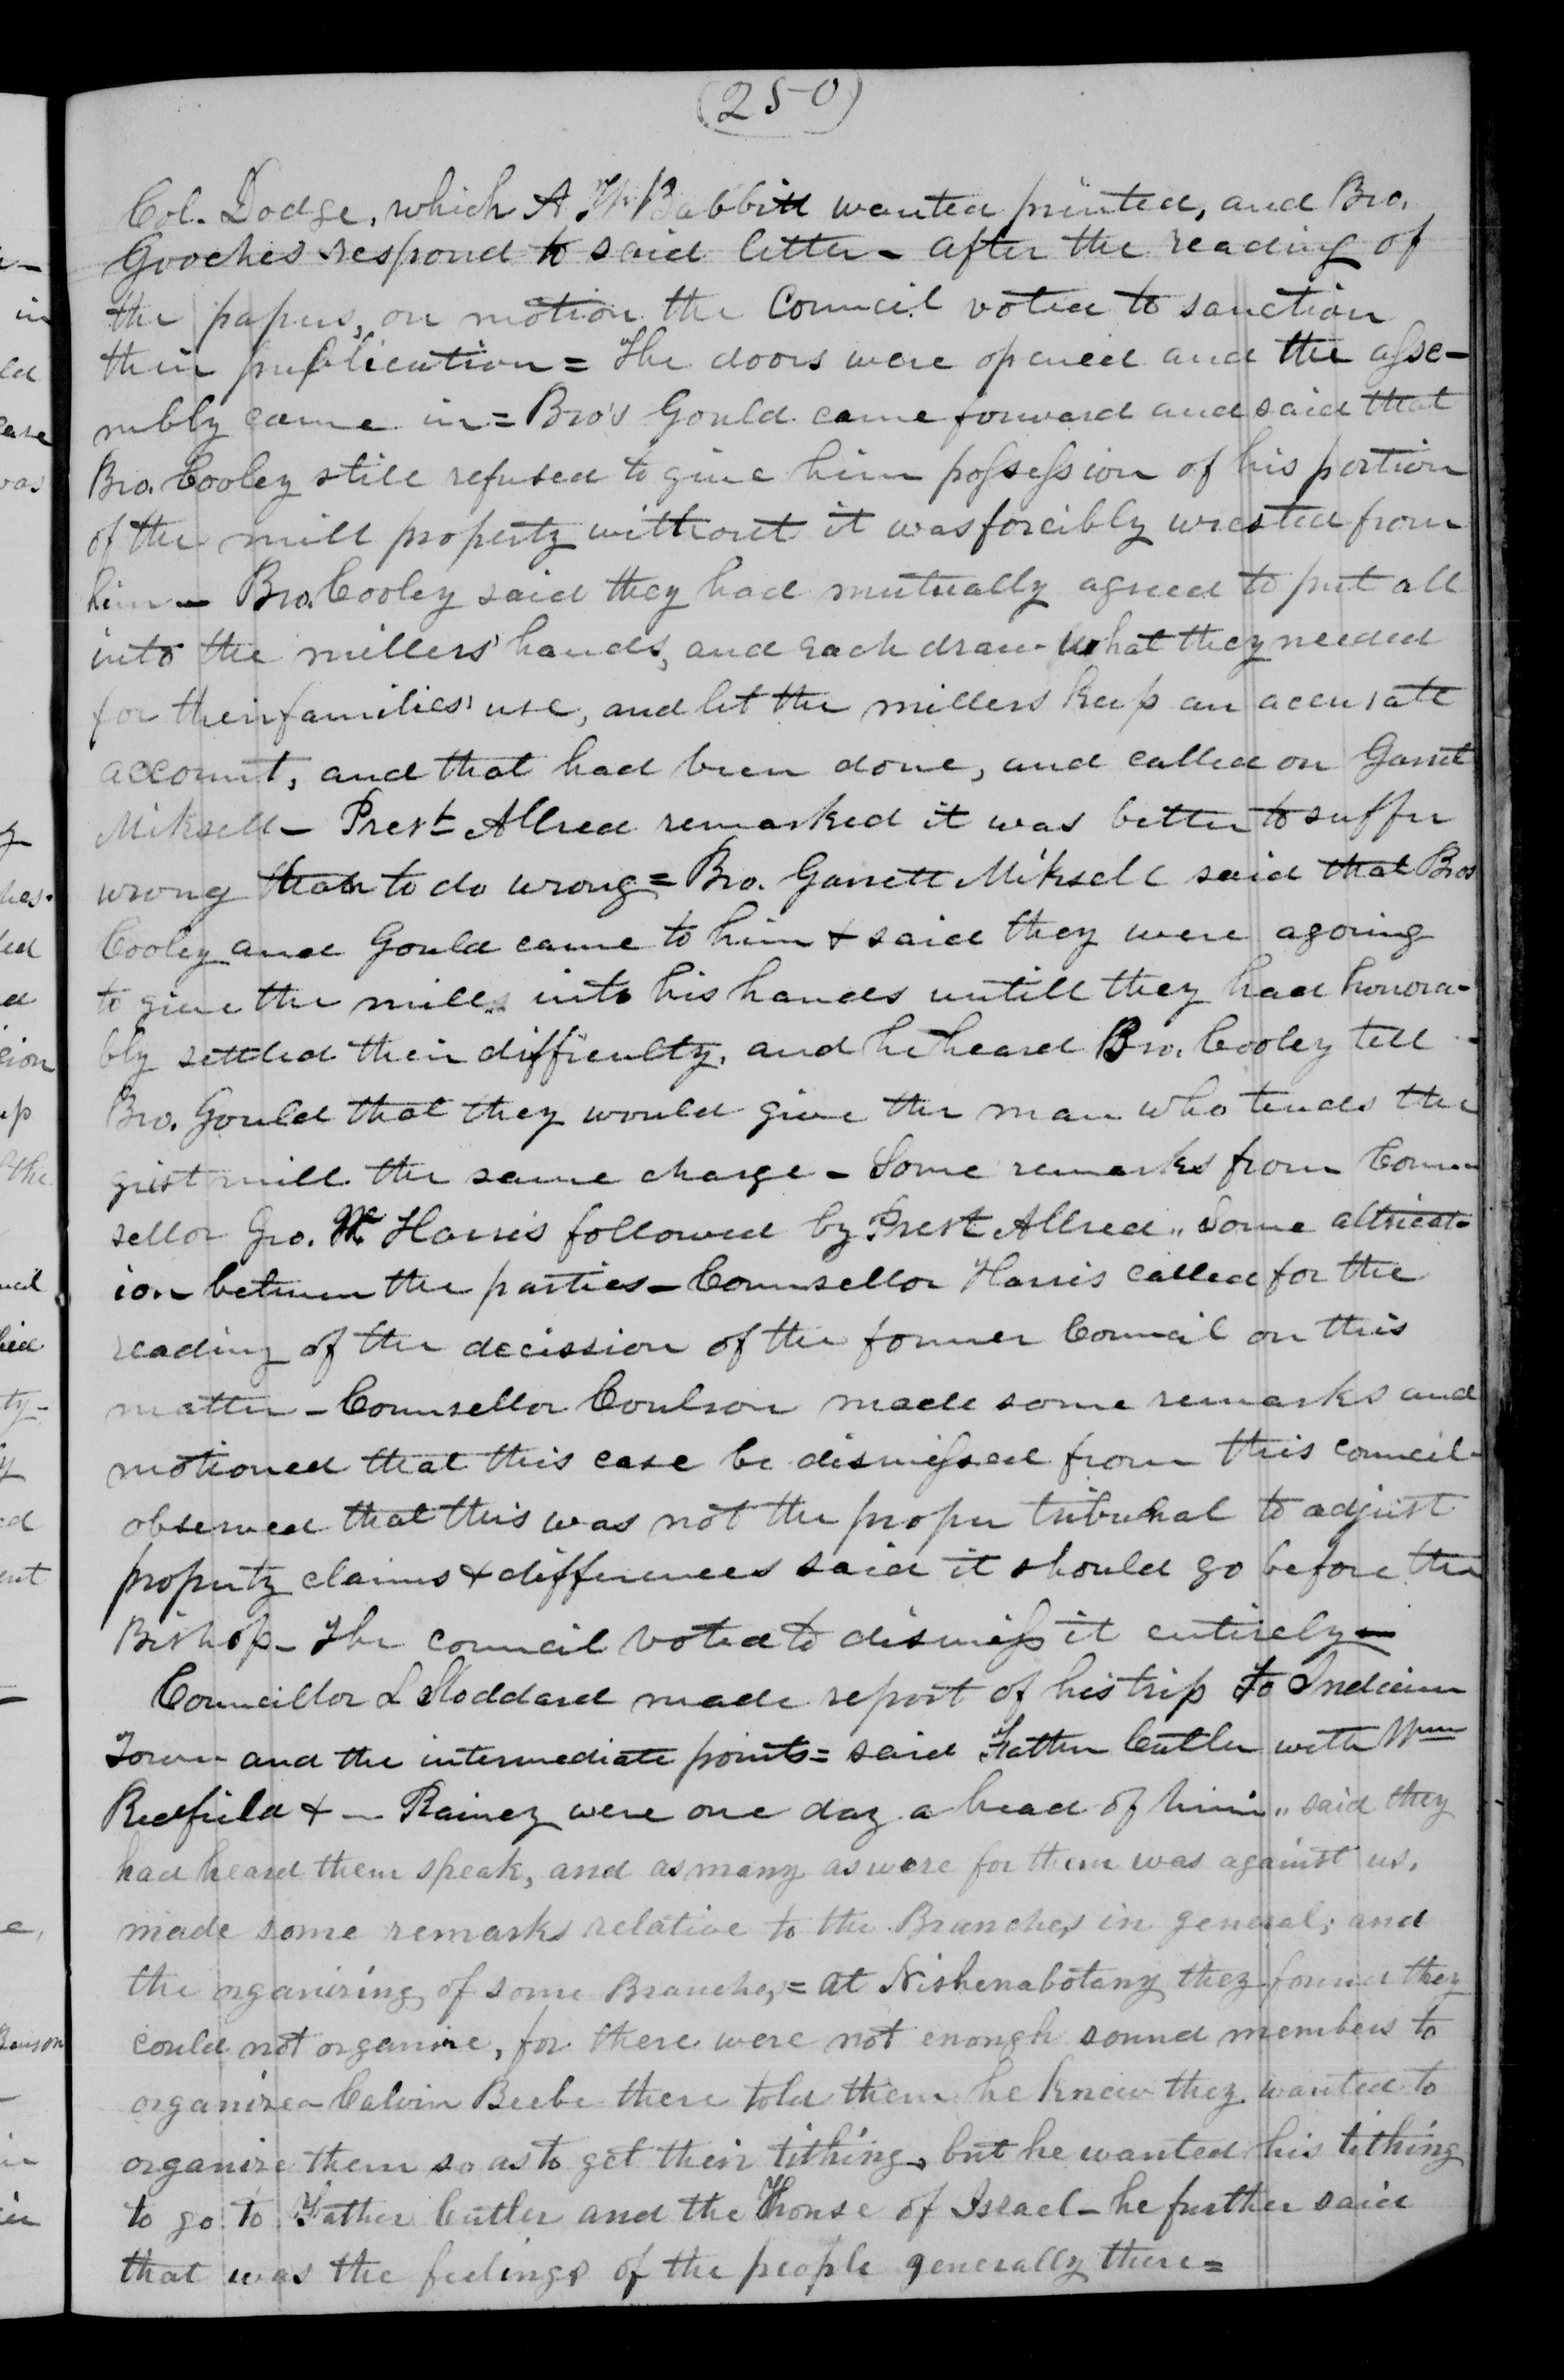 (250)
Col. Dodge, which A W Babbitt wanted printed, and Bro.
Gooches respond to said letter - after the reading of
the papers, on motion the Council voted to sanction
their publication = The doors were opened and the asse-
mbly came in = Bro's Gould came forward and said that
Bro. Cooley still refused to give him possession of his portion
of the mill property without it was forcibly wrested from
him - Bro. Cooley said they had mutually agreed to put all
into the millers' hands, and each draw what they needed
for their families' use, and let the millers keep an accurate
account, and that had been done, and called on Garret
Miksell - Prest Allred remarked it was better to suffer
wrong than to do wrong = Bro. Garrett Miksell said that Bros
Cooley and Gould came to him & said they were agoing
to give the mills into his hands untill they had honora-
bly settled their difficulty, and he heard Bro. Cooley tell
Bro. Gould that they would give the man who tends the
grist mill the same charge - Some remarks from Coun-
sellor Geo. W. Harris followed by Prest Allred " Some altricat-
ion between the parties - Counsellor Harris called for the
reading of the decission of the former Council on this
matter - Counsellor Coulson made some remarks and
motioned that this case be dismissed from this council -
observed that this was not the proper tribunal to adjust
property claims & differences said it should go before the
Bishop - The council voted to dismiss it entirely -
Councillor L Stoddard made report of his trip to Indian
Town and the intermediate points = said Father Cutler with Wm
Redfield & — Rainey were one day a head of him " said they
had heard them speak, and as many as were for them was against us,
made some remarks relative to the Branches in general; and
the organizing of some Branches = at Nishenabotany they found they
could not organize, for there were not enough sound members to
organize - Calvin Beebe there told them he knew they wanted to
organize them so as to get their tithing, but he wanted his tithing
to go to Father Cutler and the House of Israel - he further said
that was the feelings of the people generally there =